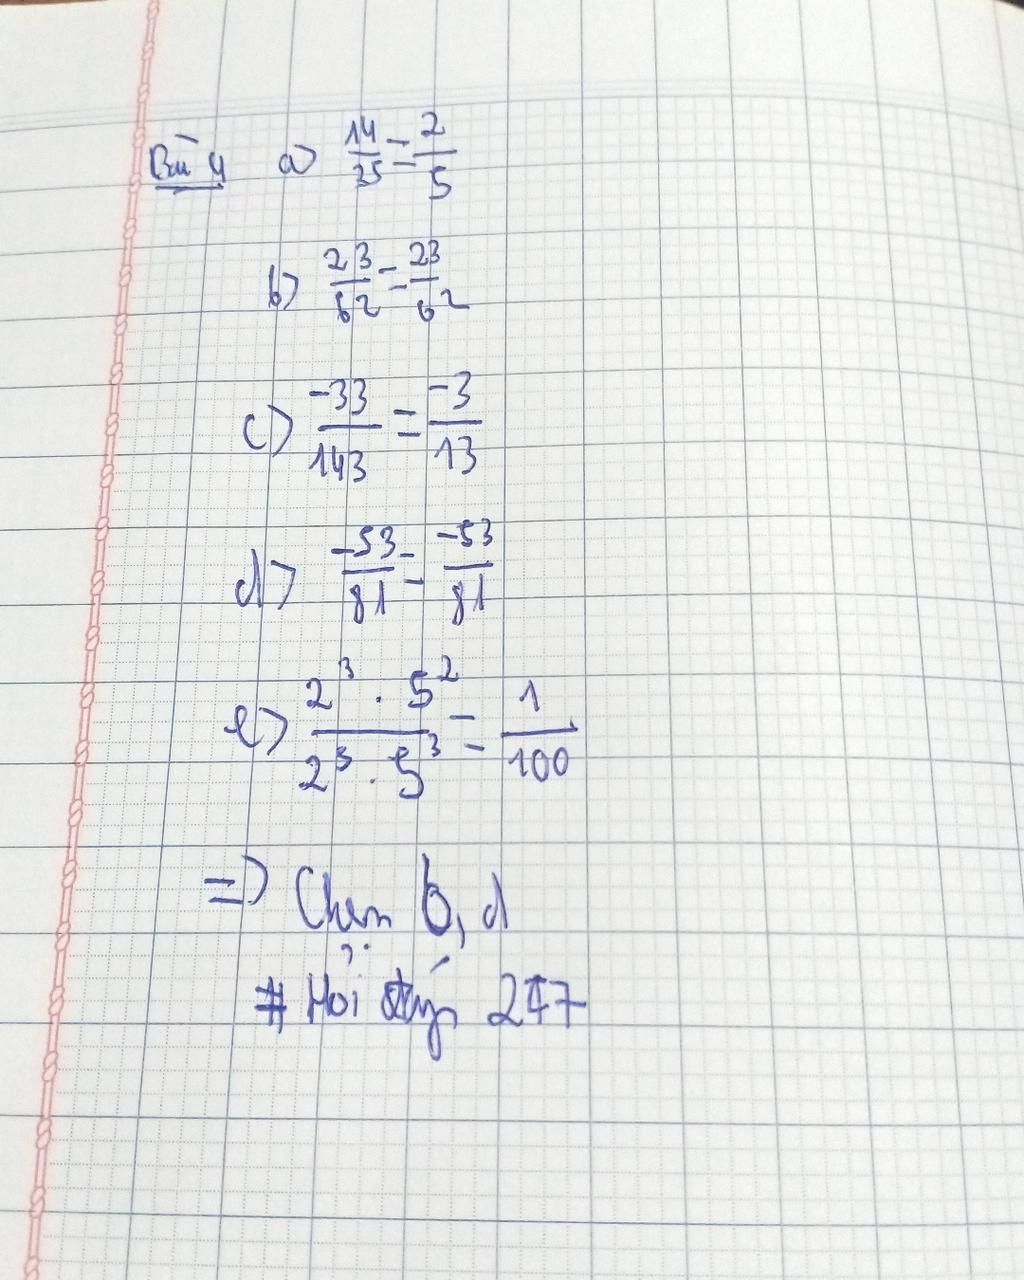 Bài 4 a) 14/35 = 2/5
b) 23/62 = 23/62
c) -33/143 = -3/13
d) -53/81 = -53/81
e) 2³ . 5²/2³ . 5³ = 1/100
=) Chọn b, d
# Hỏi đáp 247